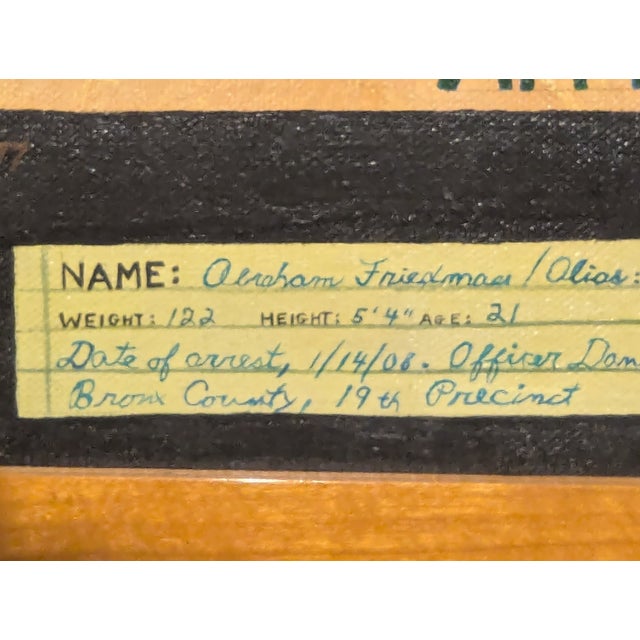 NAME: Abraham Friedman / Alias:
WEIGHT: 122 HEIGHT: 5'4" AGE: 21
Date of arrest, 1/14/08. Officer
Bronx County, 19th Precinct